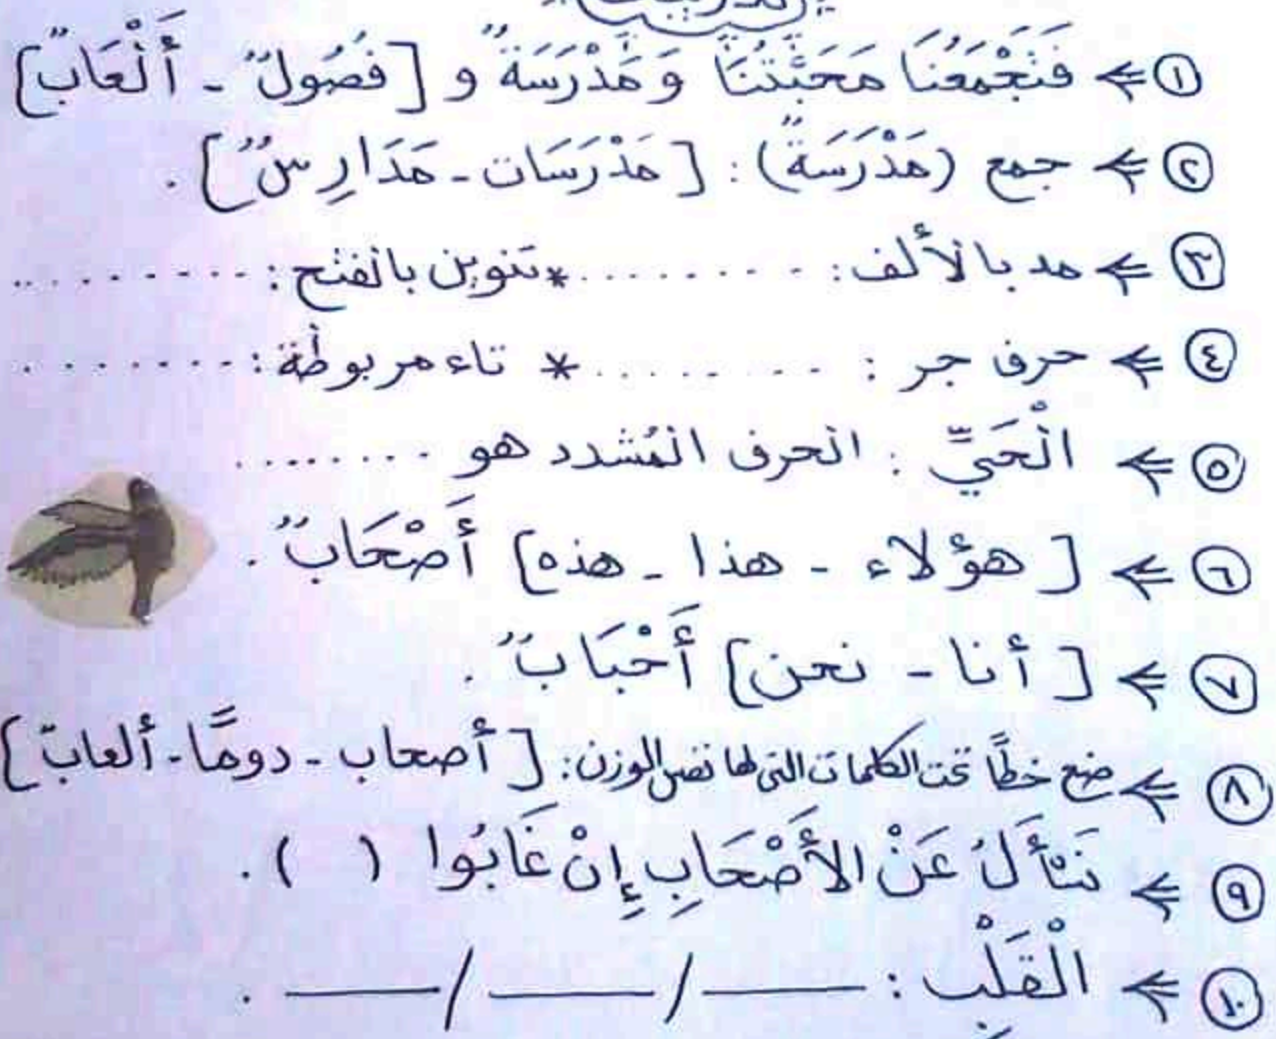 تدريبات
١ ⇐ فَتَجْمَعُنَا مَحَبَّتُنَا وَمَدْرَسَةٌ و [فُصُولٌ - أَلْعَابٌ]
٢ ⇐ جمع (مَدْرَسَةٌ): [مَدْرَسَات - مَدَارِسٌ].
٣ ⇐ مد بالألف: .......... * تنوين بالفتح: ..........
٤ ⇐ حرف جر: .......... * تاء مربوطة: ..........
٥ ⇐ الْحَيِّ: الحرف المُشدد هو ........
٦ ⇐ [هؤلاء - هذا - هذه] أَصْحَابٌ.
٧ ⇐ [أنا - نحن] أَحْبَابٌ.
٨ ⇐ ضع خطًّا تحت الكلمات التى لها نفس الوزن: [أصحاب - دومًا - ألعابٌ]
٩ ⇐ نَسْأَلُ عَنْ الأَصْحَابِ إِنْ غَابُوا ( ).
١٠ ⇐ الْقَلْبِ: ____ / ____ / ____ .